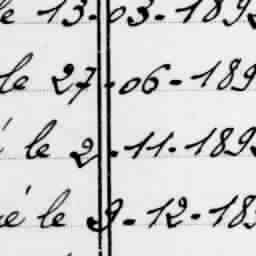 le 13.03.189
le 27.06.189
é le 2.11.189
né le 9.12.18